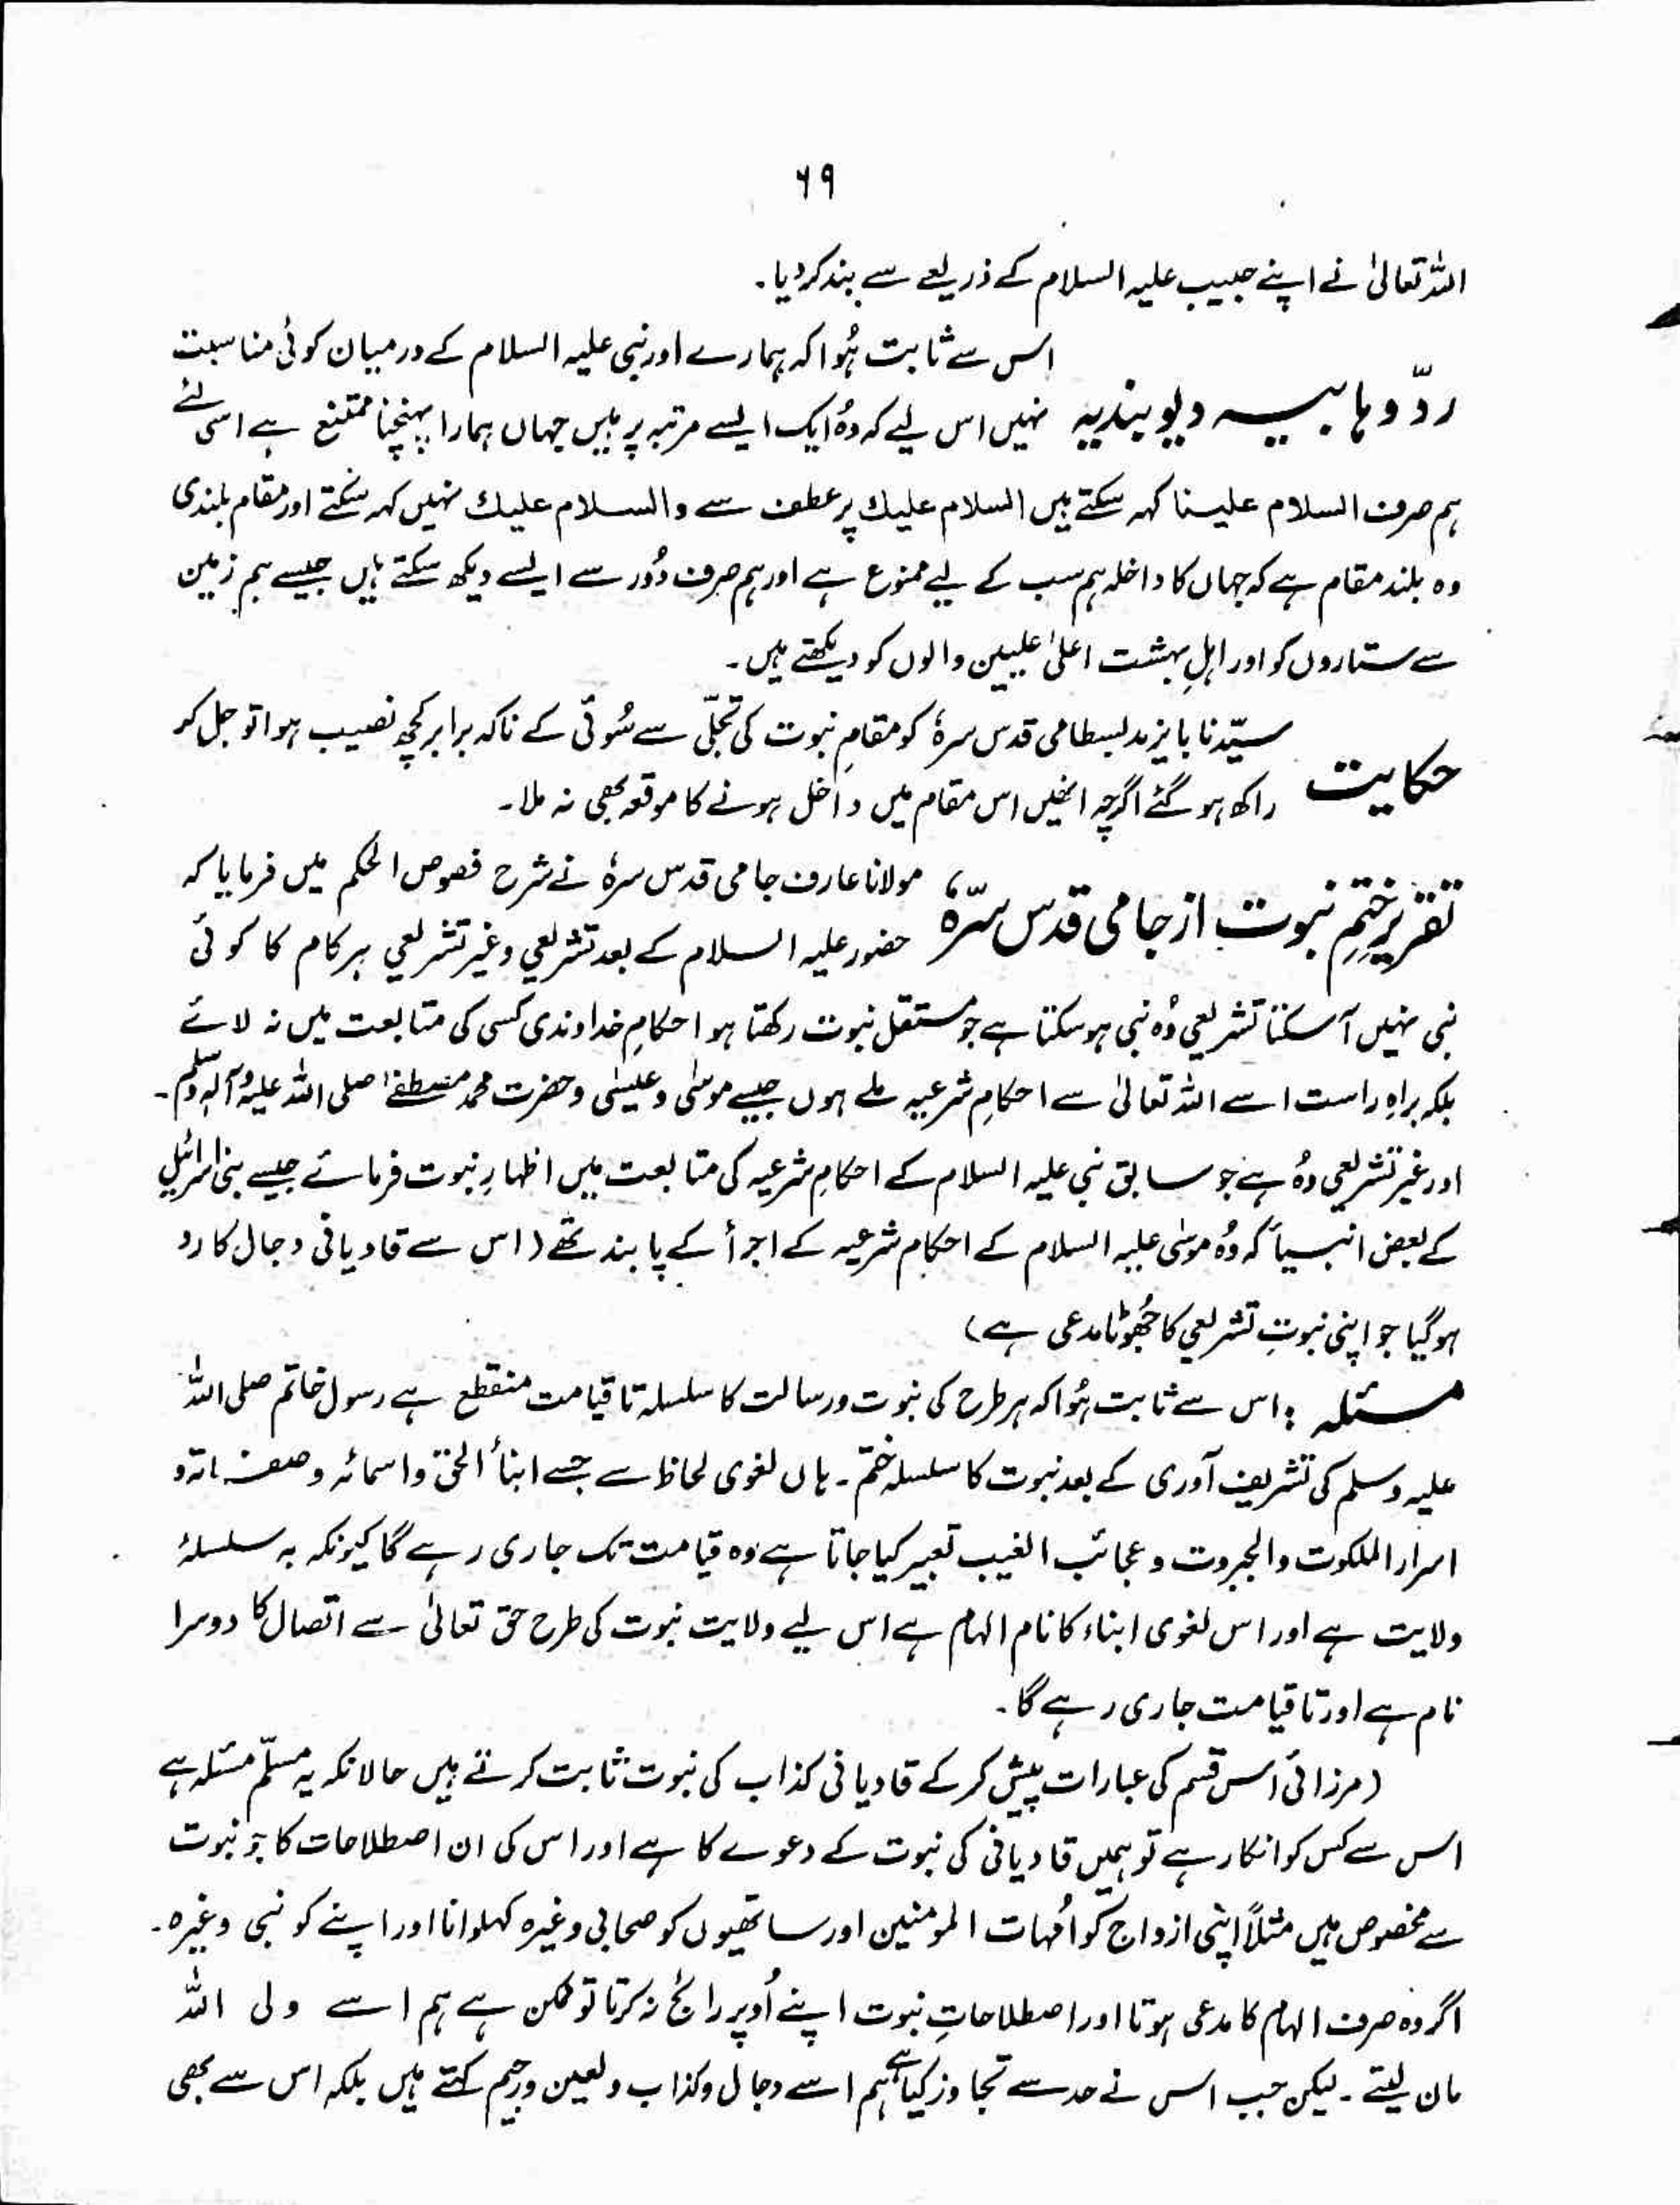 ۶۹
اللہ تعالیٰ نے اپنے حبیب علیہ السلام کے ذریعے سے بند کر دیا۔
ردّ وہابیہ دیوبندیہ
اس سے ثابت ہُوا کہ ہمارے اور نبی علیہ السلام کے درمیان کوئی مناسبت
نہیں اس لیے کہ وُہ ایک ایسے مرتبہ پر ہیں جہاں ہمارا پہنچنا ممتنع ہے اسی لئے
ہم صرف السلام علینا کہہ سکتے ہیں السلام علیك پر عطف سے والسلام علیك نہیں کہہ سکتے اور مقام بلندی
وہ بلند مقام ہے کہ جہاں کا داخلہ ہم سب کے لیے ممنوع ہے اور ہم صرف دُور سے ایسے دیکھ سکتے ہیں جیسے ہم زمین
سے ستاروں کو اور اہلِ بہشت اعلیٰ علیین والوں کو دیکھتے ہیں۔
حکایت
سیّدنا بایزید بسطامی قدس سرہٗ کو مقامِ نبوت کی تجلّی سے سُوئی کے ناکہ برابر کچھ نصیب ہوا تو جل کر
راکھ ہو گئے اگرچہ انھیں اس مقام میں داخل ہونے کا موقعہ بھی نہ ملا۔
تقریر ختمِ نبوت از جامی قدس سّرہٗ
مولانا عارف جامی قدس سرہٗ نے شرح فصوص الحکم میں فرمایا کہ
حضور علیہ السلام کے بعد تشریعی وغیر تشریعی ہر کام کا کوئی
نبی نہیں آ سکتا تشریعی وُہ نبی ہو سکتا ہے جو مستقل نبوت رکھتا ہو احکامِ خداوندی کسی کی متابعت میں نہ لائے
بلکہ براہِ راست اسے اللہ تعالیٰ سے احکامِ شرعیہ ملے ہوں جیسے موسٰی و عیسٰی و حضرت محمد مصطفےٰ صلی اللہ علیہ وآلہ وسلم۔
اور غیر تشریعی وُہ ہے جو سابق نبی علیہ السلام کے احکامِ شرعیہ کی متابعت میں اظہارِ نبوت فرمائے جیسے بنی اسرائیل
کے بعض انبیأ کہ وُہ موسٰی علیہ السلام کے احکام شرعیہ کے اجرأ کے پابند تھے (اس سے قادیانی دجال کا رد
ہو گیا جو اپنی نبوتِ تشریعی کا جُھوٹا مدعی ہے)
مسئلہ : اس سے ثابت ہُوا کہ ہر طرح کی نبوت ورسالت کا سلسلہ تا قیامت منقطع ہے رسول خاتم صلی اللہ
علیہ وسلم کی تشریف آوری کے بعد نبوت کا سلسلہ ختم۔ ہاں لغوی لحاظ سے جسے ابنأ الحق واسمائہ وصفاتہ و
اسرار الملکوت والجبروت و عجائب الغیب تعبیر کیا جاتا ہے وہ قیامت تک جاری رہے گا کیونکہ یہ سلسلۂ
ولایت ہے اور اس لغوی ابناء کا نام الہام ہے اس لیے ولایت نبوت کی طرح حق تعالیٰ سے اتصال کا دوسرا
نام ہے اور تا قیامت جاری رہے گا۔
(مرزائی اس قسم کی عبارات پیش کر کے قادیانی کذاب کی نبوت ثابت کرتے ہیں حالانکہ یہ مسلّم مسئلہ ہے
اس سے کس کو انکار ہے تو ہمیں قادیانی کی نبوت کے دعوے کا ہے اور اس کی ان اصطلاحات کا جو نبوت
سے مخصوص ہیں مثلاً اپنی ازواج کو اُمہات المومنین اور ساتھیوں کو صحابی وغیرہ کہلوانا اور اپنے کو نبی وغیرہ۔
اگر وہ صرف الہام کا مدعی ہوتا اور اصطلاحاتِ نبوت اپنے اُوپر رائج نہ کرتا تو ممکن ہے ہم اسے ولی اللہ
مان لیتے۔ لیکن جب اس نے حد سے تجاوز کیا ہے ہم اسے دجال وکذاب ولعین ورجیم کہتے ہیں بلکہ اس سے بھی